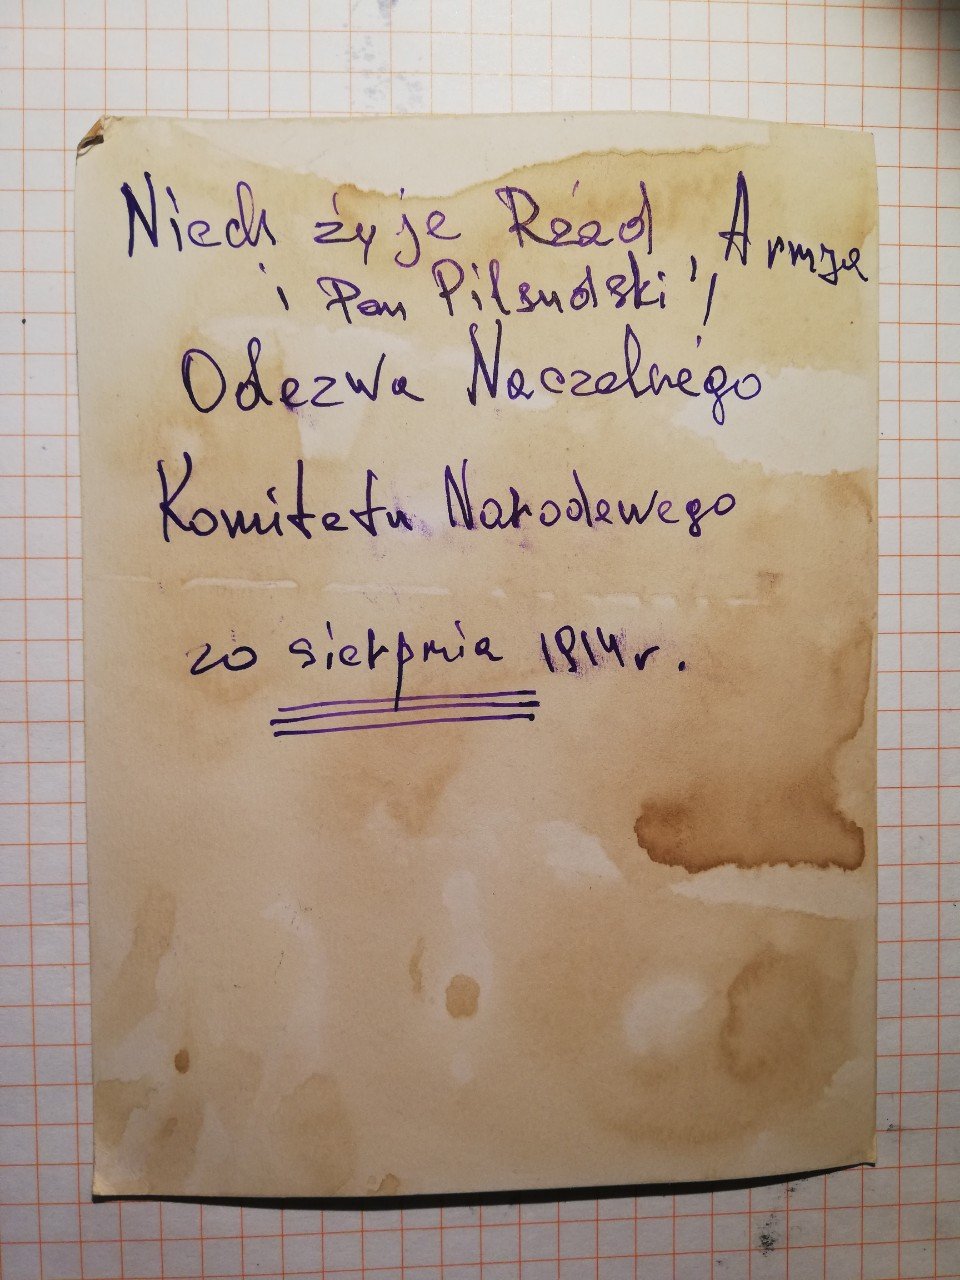 Niech żyje Rżad, Armja
i Pan Piłsudski"!
Odezwa Naczelnego
Komitetu Narodowego
20 sierpnia 1914 r.